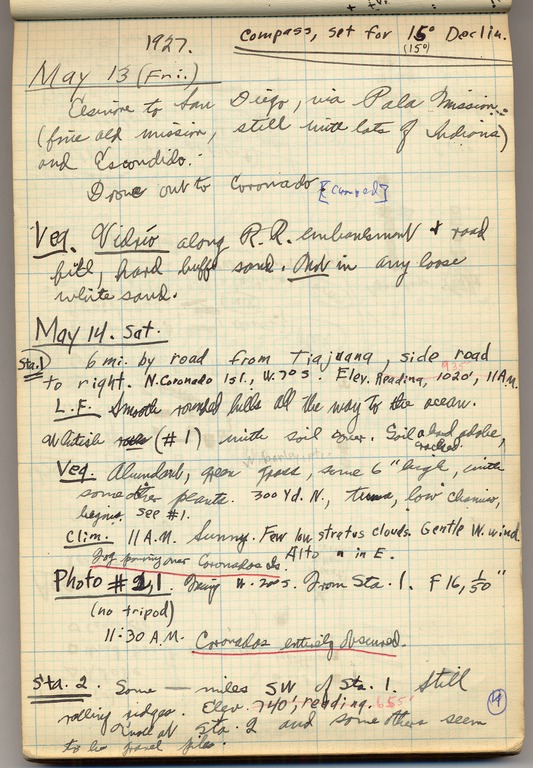 Compass, set for 15° Declin.
(15°)
1927.
May 13 (Fri.)
Elsinore to San Diego, via Pala Mission
(fine old mission, still with lots of Indians)
and Escondido.
Drove out to Coronado [camped]
Veg. Vidrio along R.R. embankment & road
fill, hard buff sand. Not in any loose
white sand.
May 14. Sat.
Sta. 1 6 mi. by road from Tiajuana, side road
to right. N. Coronado Isl., W. 7° S. Elev. Reading, 1020', 11 A.M.
L.F. Smooth rounded hills all the way to the ocean.
Whitish (#1) with soil over. Soil a hard adobe,
cracked.
Veg. Abundant, green grass, some 6" high, with
some other plants. 300 Yd. N., low chamiso,
begins. See #1.
Clim. 11 A.M. Sunny. Few low stratus clouds. Gentle W. wind.
Alto " in E.
Fog pouring over Coronados Is.
Photo # 1. W. 20° S. From Sta. 1. F 16, 1/50"
(no tripod)
11:30 A.M. Coronados entirely obscured.
Sta. 2. Some — miles SW of Sta. 1. Still
rolling ridges. Elev. 740', reading. 655'
Sta. 2 and some others seem
to be gravel